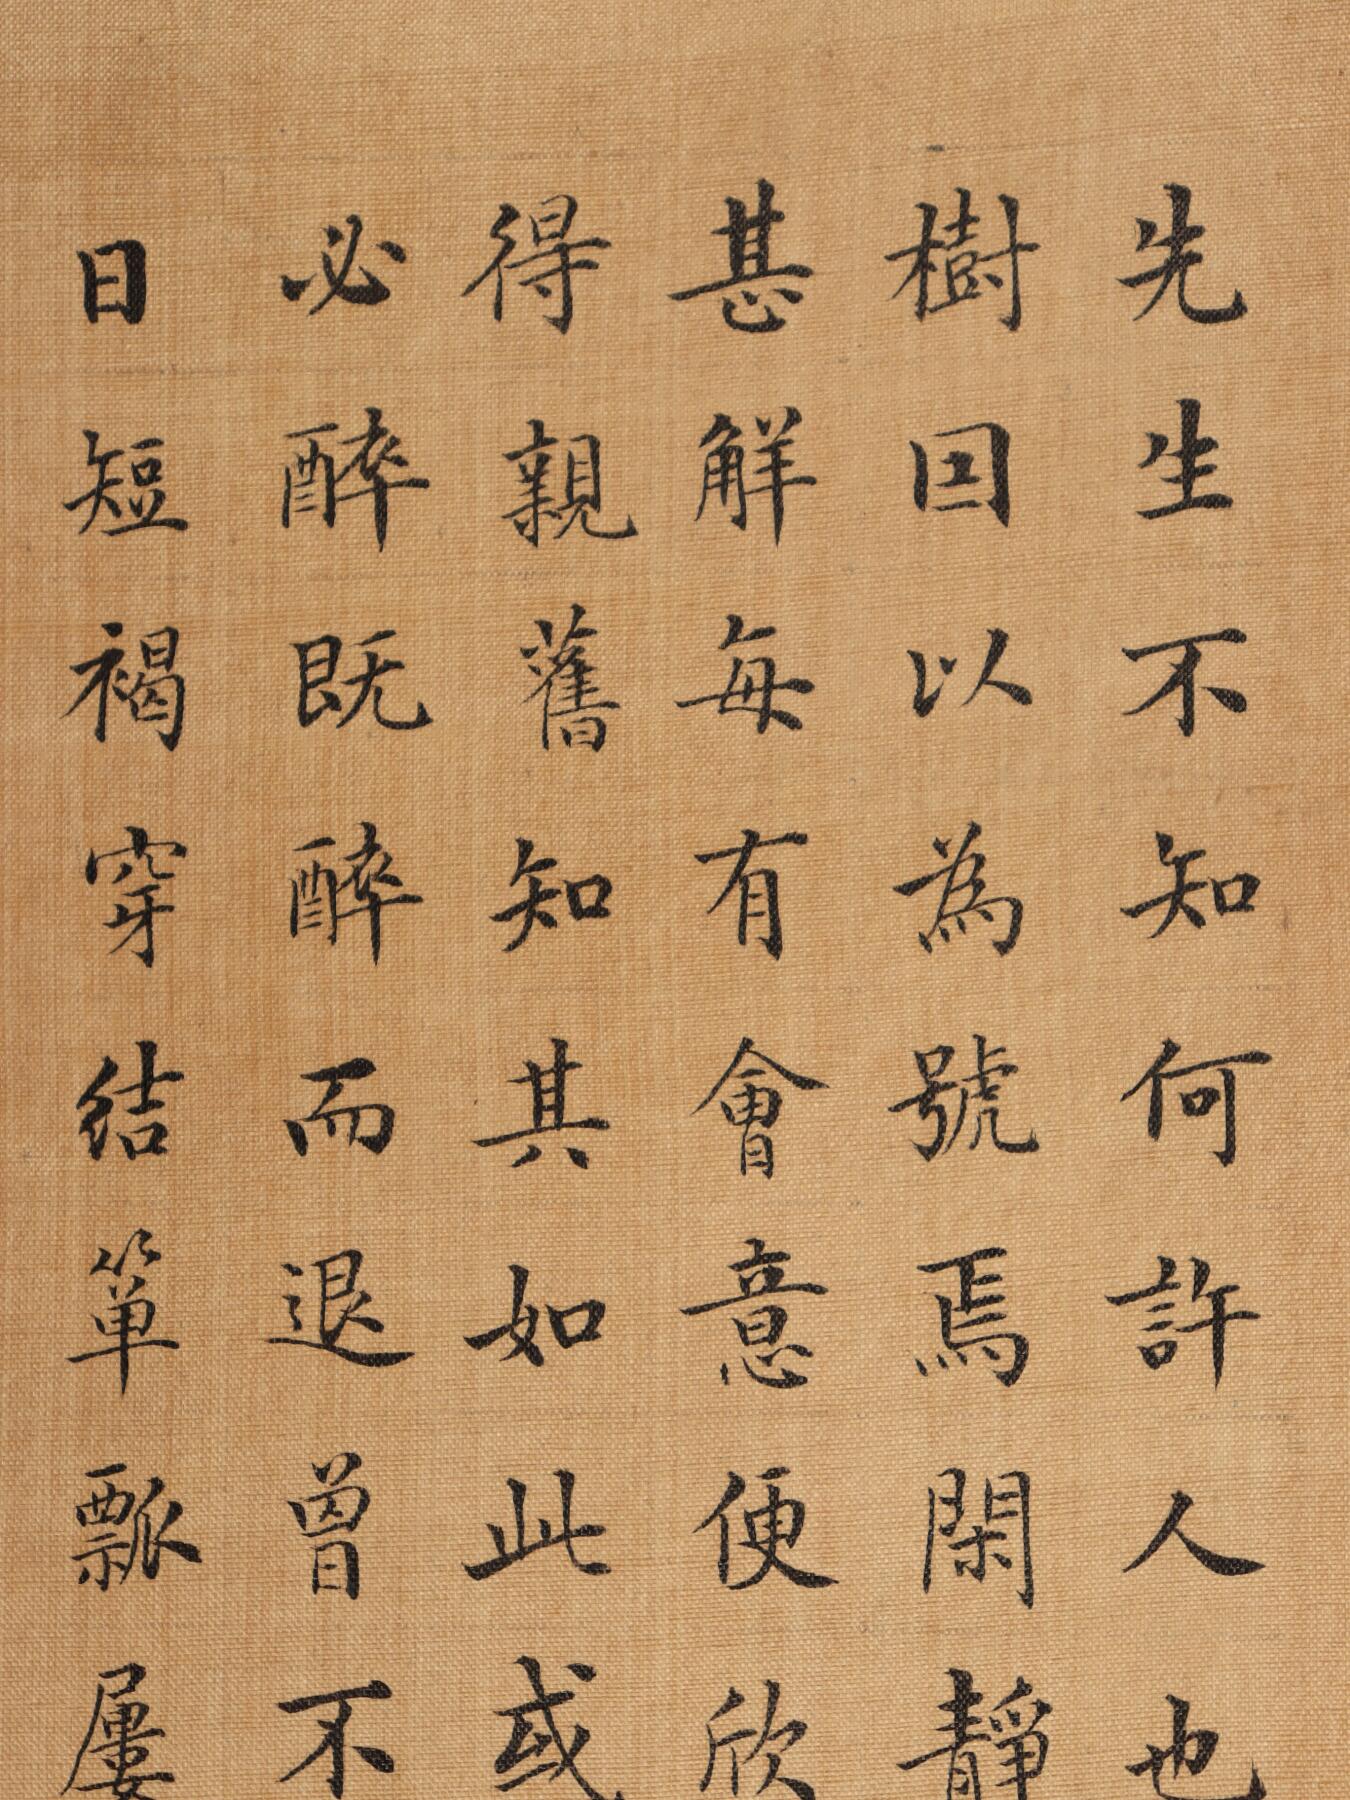 先生不知何許人也
樹因以為號焉閑靜
甚解每有會意便欣
得親舊知其如此或
必醉既醉而退曾不
日短褐穿結簞瓢屢